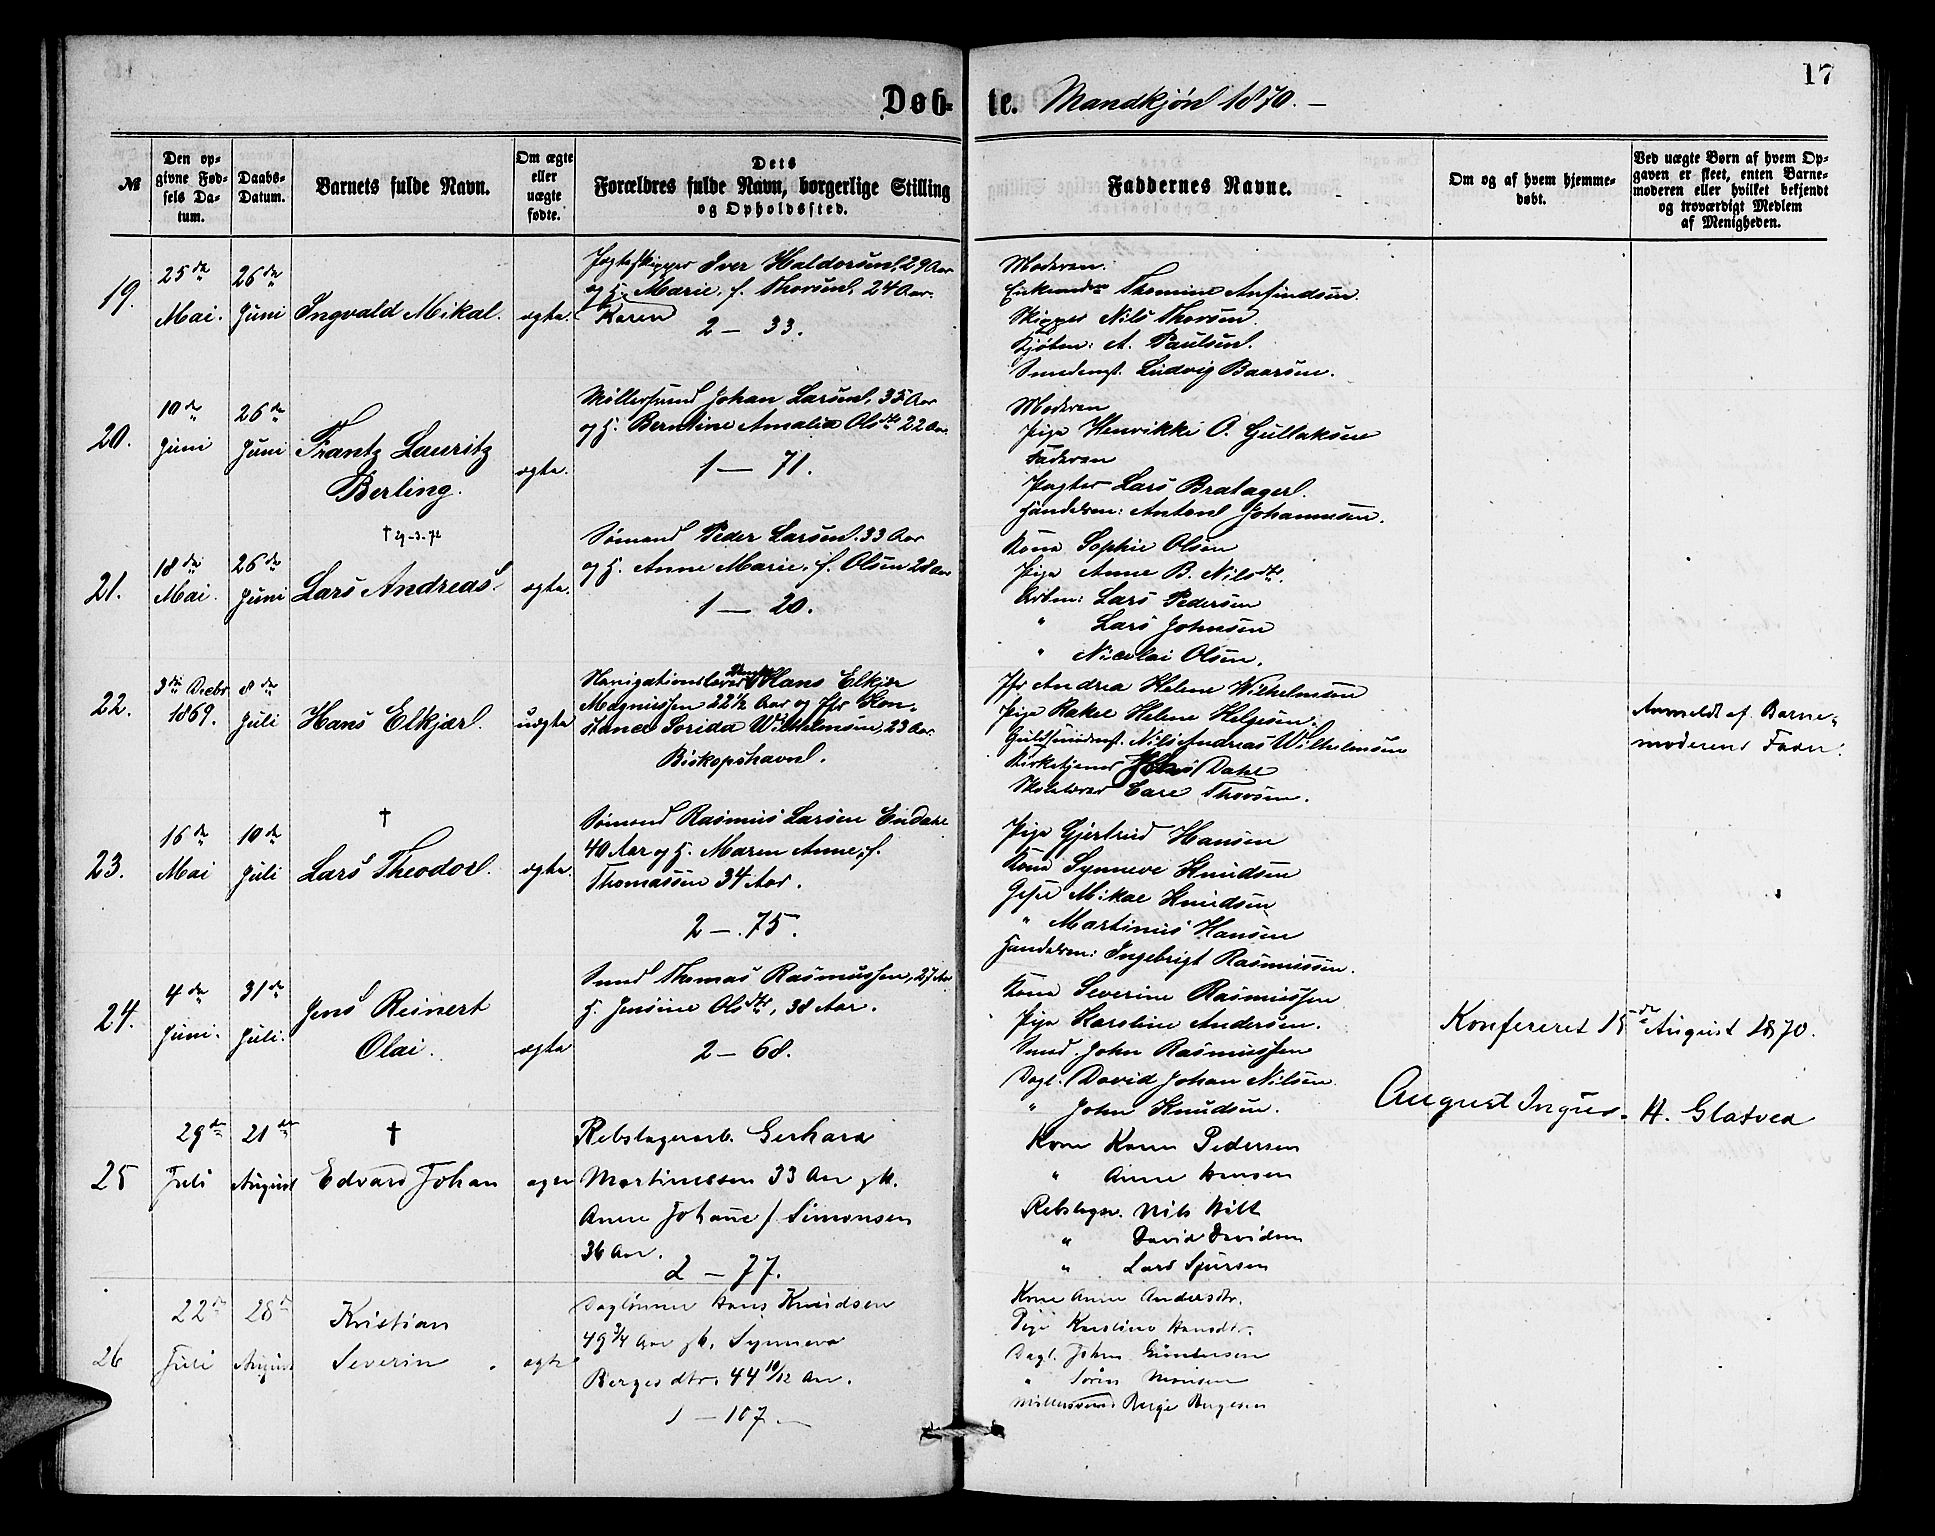 17
Døb- te. Mandkjøn 1870. –
№
Den op-
givne Fød-
sels Da-
tum.
Daabs-
Datum.
Barnets fulde Navn.
Om ægte
eller
uægte
fødte.
Dets
Forældres fulde Navn, borgerlige Stilling
og Opholdssted.
Faddernes Navne.
Om og af hvem hjemme-
døbt.
Ved uægte Børn af hvem Op-
gaven er skeet, enten Barne-
moderen eller hvilket bekjendt
og troværdigt Medlem
af Menigheden.
19.
25de
Mai.
26de
Juni
Ingvald Mikal.
ægte.
Jagteskipper Iver Haldorsen, 29 Aar
og H. Marie, f. Thorsen, 24 Aar.
Karen
2 – 33.
Moderen.
Thomine Anfindsen.
Skipper Nils Thorsen.
Kjøbm: A. Paulsen.
Smedemst. Ludvig Baarsen.
20.
10de
Juni
26de
Juni
Frantz Lauritz
Berling.
ægte.
Møllersvend Johan Larsen, 35 Aar
og H. Berntine Amalia Olsdtr 22 Aar.
1 – 71.
Moderen
Pige Henrikke O. Gullaksen
Faderen
Lars Bratager.
Handelsm: Anton Johannesen.
21.
18de
Mai.
26de
Juni
† 29-3-72
Lars Andreas.
ægte.
Sømand Peder Larsen, 33 Aar
og H. Anne Marie, f. Olsen 28 Aar
1 – 20.
Kone Sophie Olsen
Pige Anne B. Nilsdtr.
Arbm: Lars Pedersen
" Lars Johnsen
" Nicolai Olsen.
22.
3die Decbr
1869.
8de
Juli
Hans Elkjær.
uægte
Navigationslærer Hans Elkjær
Magnussen 22 1/2 Aar og Pige Kon-
stance Lorida Wilhelmsen, 23 Aar
Biskopshavn.
Andrea Helene Wilhelmsen
Pige Rakel Helene Helgesen
Guldsmedmst. Nils Andreas Wilhelmsen
Kirketjener Dahl
Skolelærer Carl Thorsen.
Anmeldt af Barne-
moderens Fader.
23.
16de
Mai
10de
Juli
†
Lars Theodor.
ægte.
Sømand Rasmus Larsen Endahl
40 Aar og H. Maren Anne, f.
Thomassen 34 Aar.
2 – 75.
Pige Gjertrud Hansen
Kone Synneve Knudsen
Mikal Knudsen
" Martinus Hansen
Handelsm: Ingebrigt Rasmussen.
24.
4de
Juni.
31de
Juli.
Jens Reinert
Olai.
ægte
Smed Thomas Rasmussen, 27 Aar
H. Jensine Olsdtr, 38 Aar.
2 – 68.
Kone Severine Rasmussen
Pige Karoline Andersen.
Smed. John Rasmussen
Dagl. David Johan Nilsen
" John Knudsen.
Konfereret 15de August 1870.
August Ingier. H. Glatved
25
29de
Juli
21de
August
†
Edvard Johan
ægte
Rebslagerarb. Gerhard
Martinussen 33 Aar gH.
Anne Johanne f. Simonsen
36 Aar.
2 – 77.
Kone Karen Pedersen
" Anne Hansen
Rebslager. Nils Hilt
" David Davidsen
" Lars Sjursen
26
22de
Juli
28de
August
Kristian
Severin
ægte
Daglønner Hans Knudsen
49 3/4 Aar gH. Synneva
Bergesdtr. 44 10/12 Aar.
1 – 107.
Kone Anne Andersdtr.
Pige Karoline Hansdtr.
Dagl. Johan Gundersen
" Søren Monsen
Møllersvend Berge Bergesen